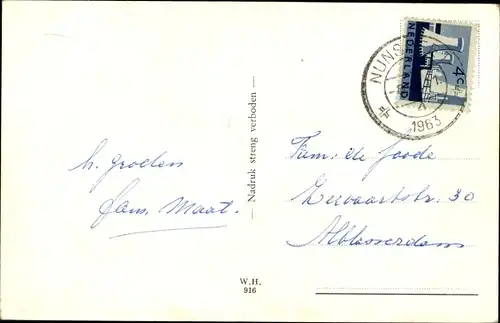 h. groeten
fam. Maat.
— Nadruk streng verboden —
W.H.
916
NUNS
1963
NEDERLAND
4c
Fam: de Joode
30
Alblasserdam